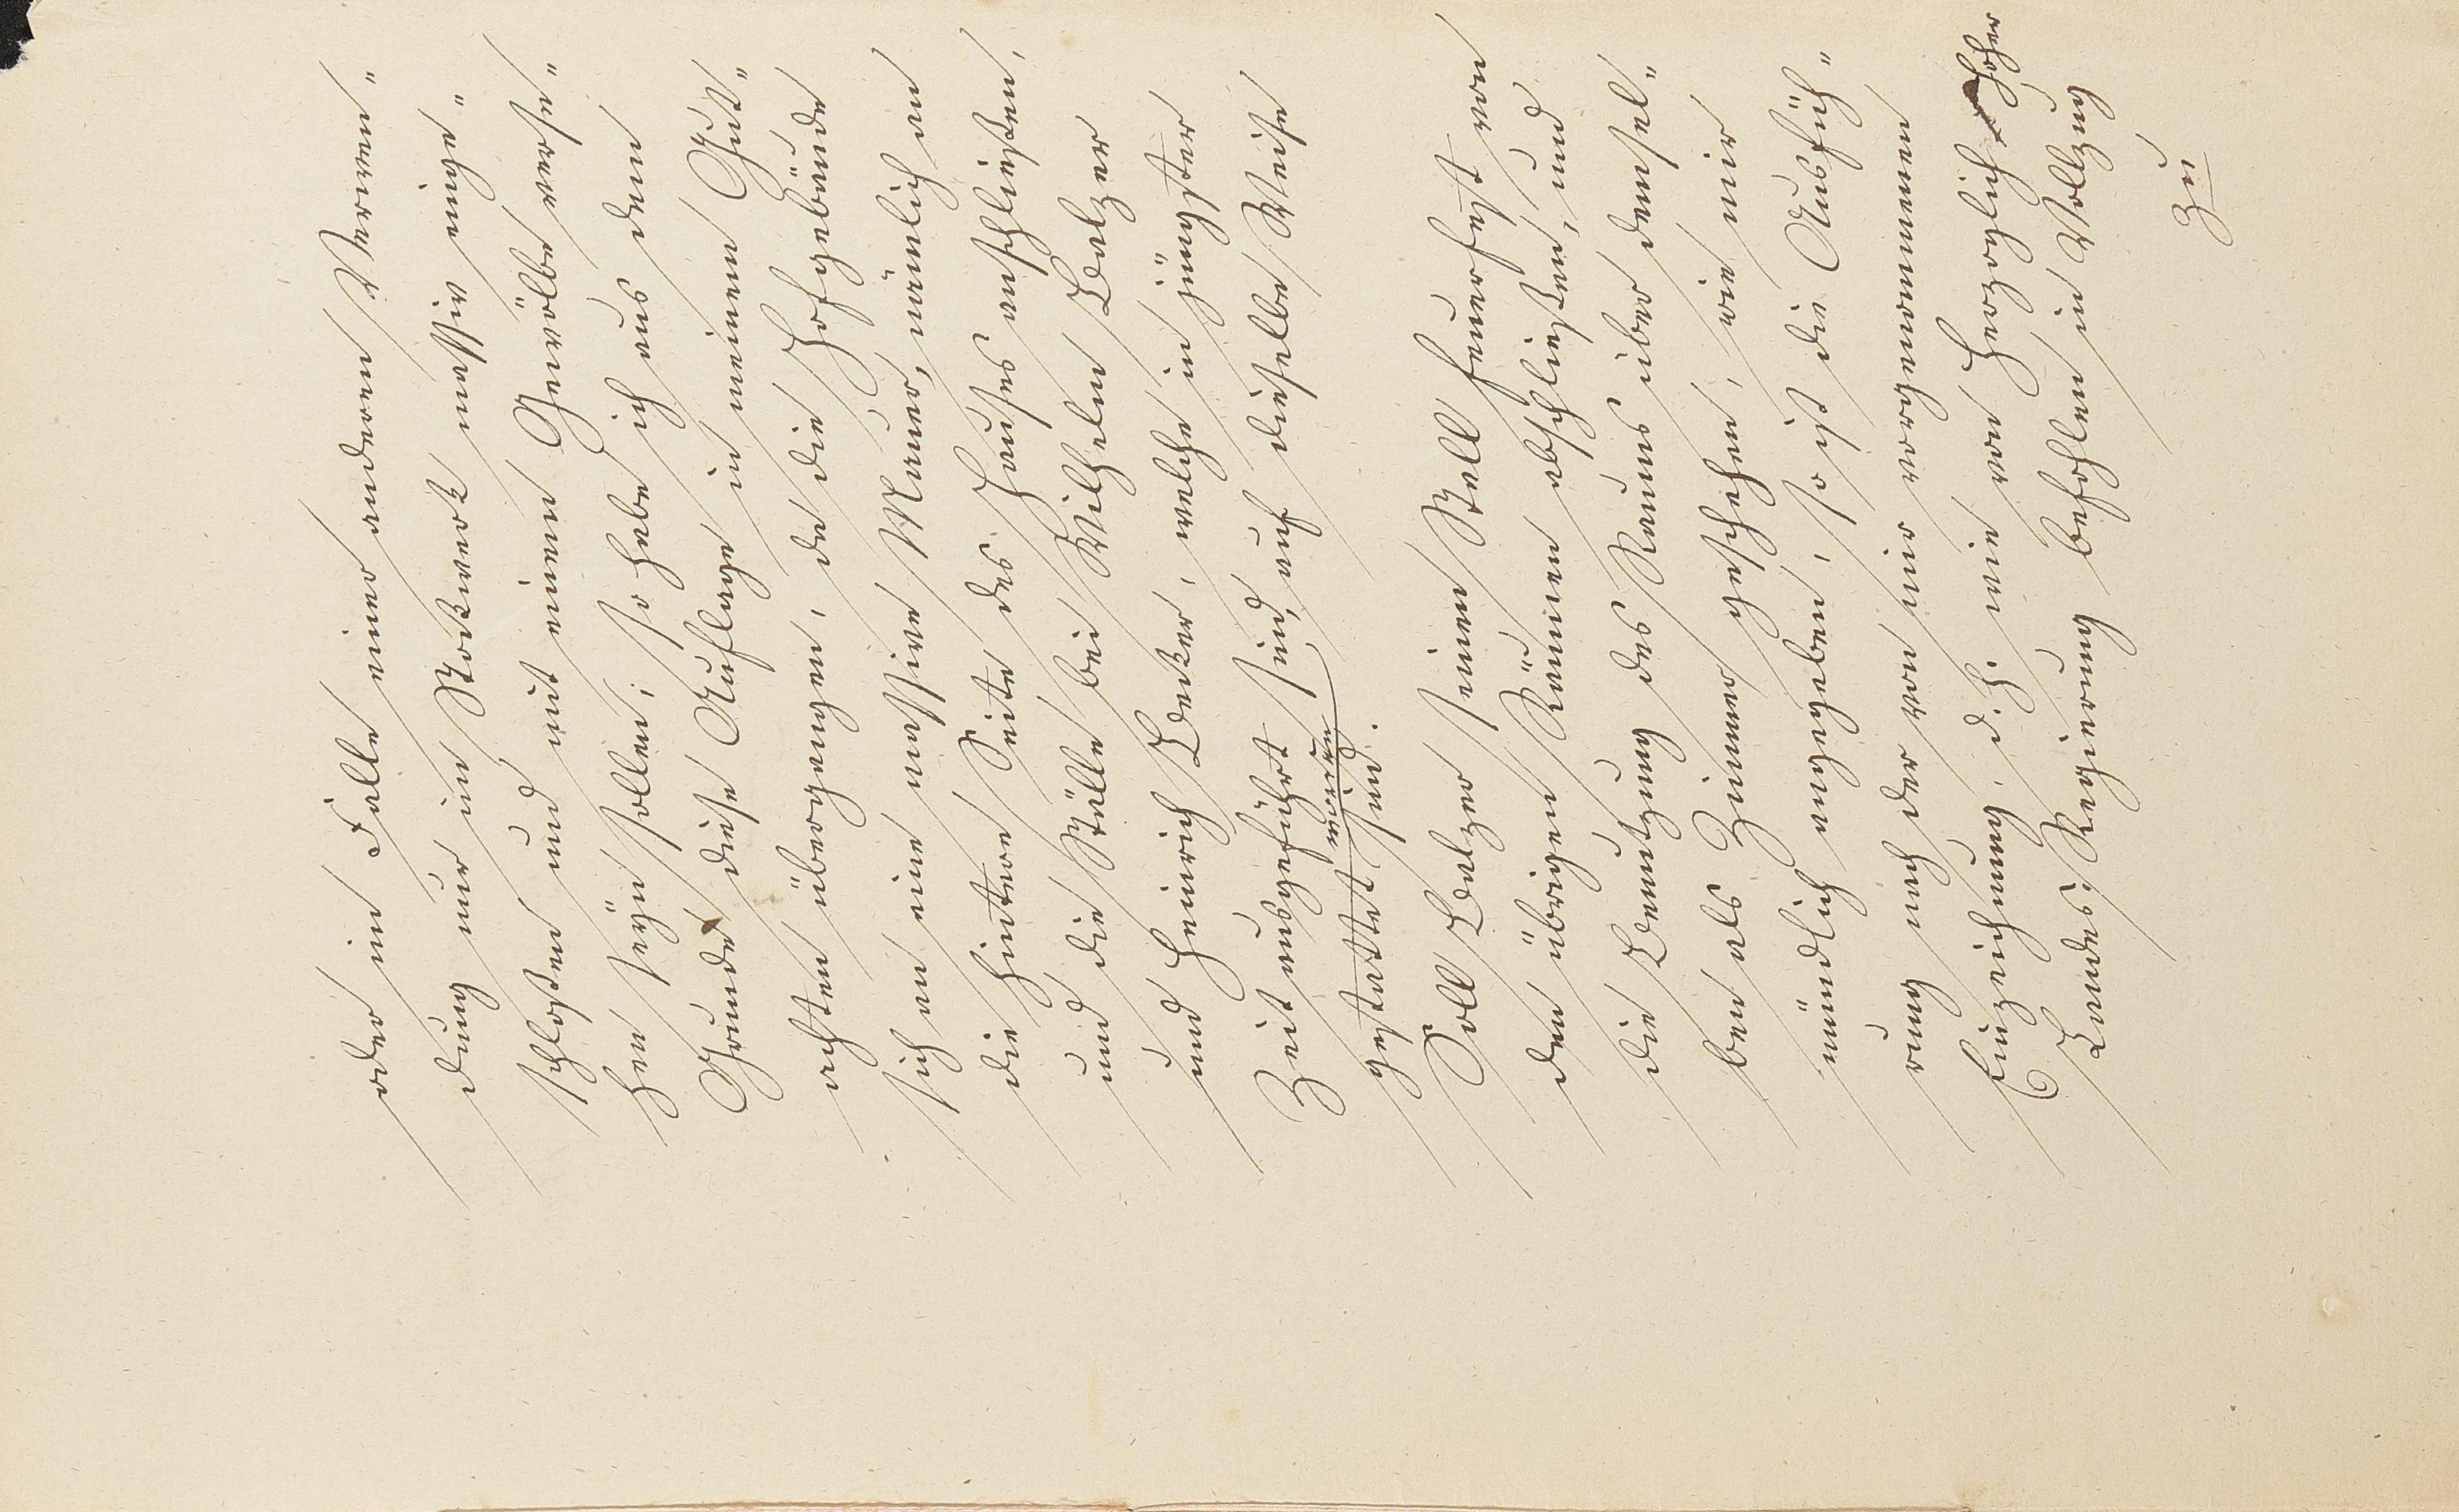 oder im Falle einer anderen Verwen-
dung nur im Stockwerk massiv einge-
schloßen und mit einem Gewölbe verse-
hen seyn sollen; so habe ich aus dem
Grunde diese Auflage in meinem Gut-
achten übergangen, da die Hofgebäude
sich an eine massive Mauer, nämlich an
die hintere Seite des Hauses anschließen,
und die Ställe bei Wilhelm Balzer
und Heinrich Becker, welche in jüngster
Zeit ausgeführt sind, auf dieselbe Weise
gestattet worden sind.
Soll Balzer seinen Stall feuerfest von
den übrigen Räumen abschließen, und
die Benutzung des Raums über demsel-
ben als Zimmer geschehen, wie mir
mündlich angegeben, so ist die Ausfüh-
rung nach der von mir vorgenommenen
Einzeichnung, d. h. wie von Herzoglich Hoher
Landes-Regierung befohlen in Vollzug
zu